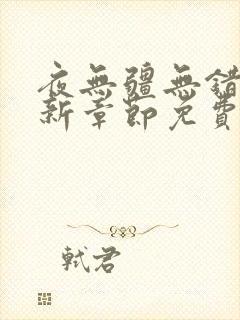 夜無疆無錯
新章節免費
軾君